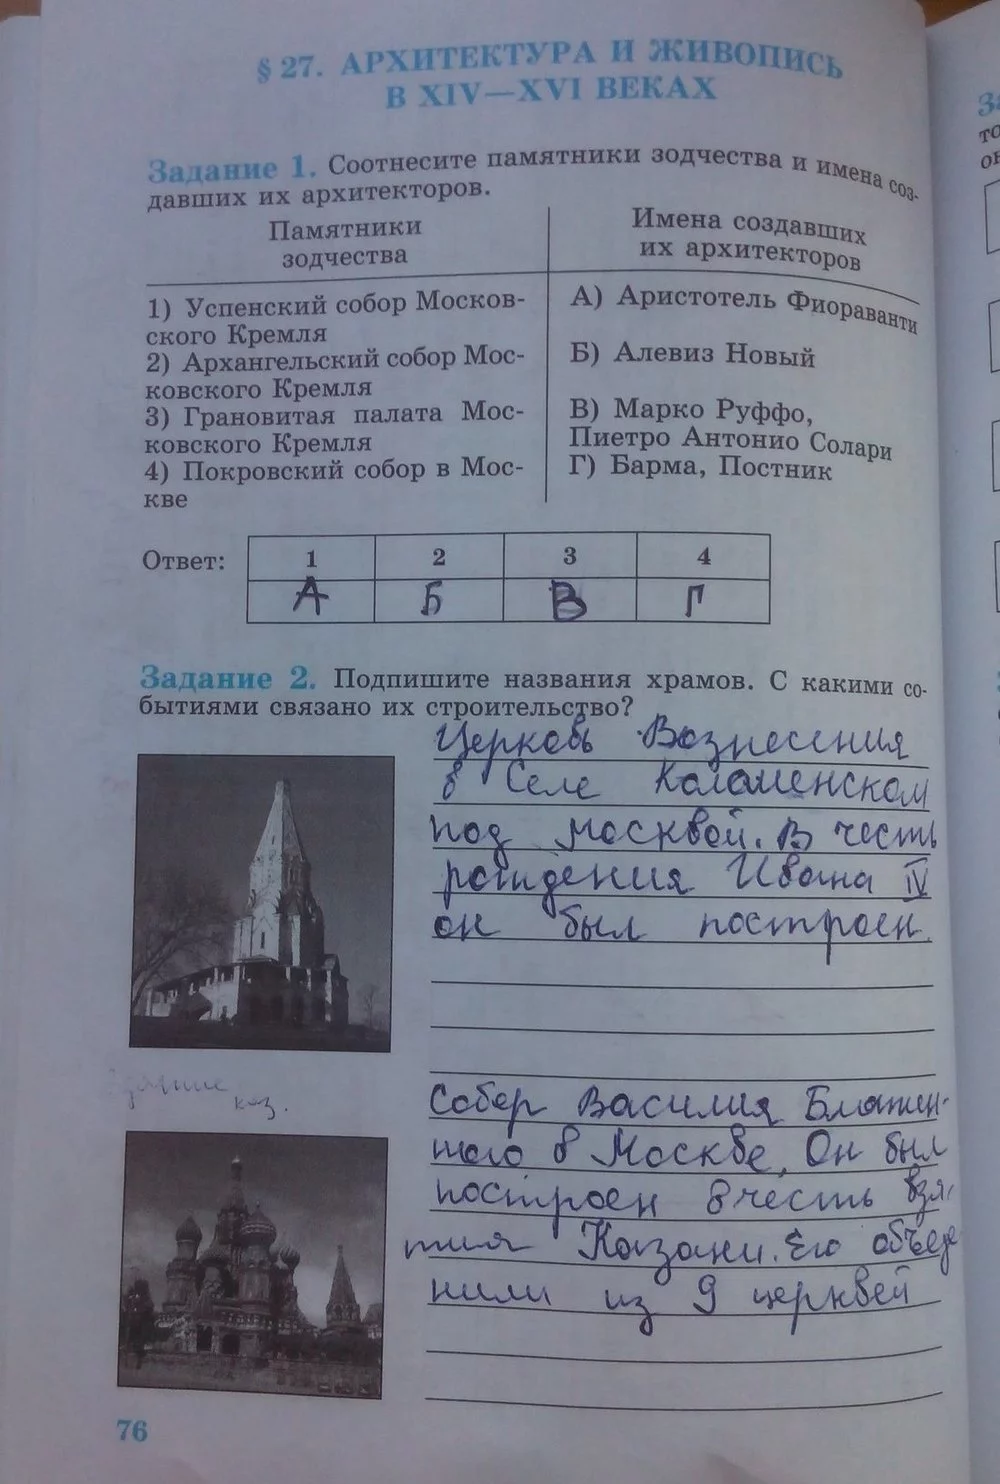 § 27. АРХИТЕКТУРА И ЖИВОПИСЬ
В XIV—XVI ВЕКАХ
Задание 1. Соотнесите памятники зодчества и имена соз-
давших их архитекторов.
Памятники
зодчества
Имена создавших
их архитекторов
1) Успенский собор Москов-
ского Кремля
2) Архангельский собор Мос-
ковского Кремля
3) Грановитая палата Мос-
ковского Кремля
4) Покровский собор в Мос-
кве
А) Аристотель Фиораванти
Б) Алевиз Новый
В) Марко Руффо,
Пиетро Антонио Солари
Г) Барма, Постник
Ответ:
1 2 3 4
А Б В Г
Задание 2. Подпишите названия храмов. С какими со-
бытиями связано их строительство?
Церковь Вознесения
в Селе Коломенском
под Москвой. В честь
рождения Ивана IV
он был построен.
каз.
Собор Василия Блажен-
ного в Москве. Он был
построен в честь взя-
тия Казани. Его объеде
нили из 9 церквей
76
За
то
он